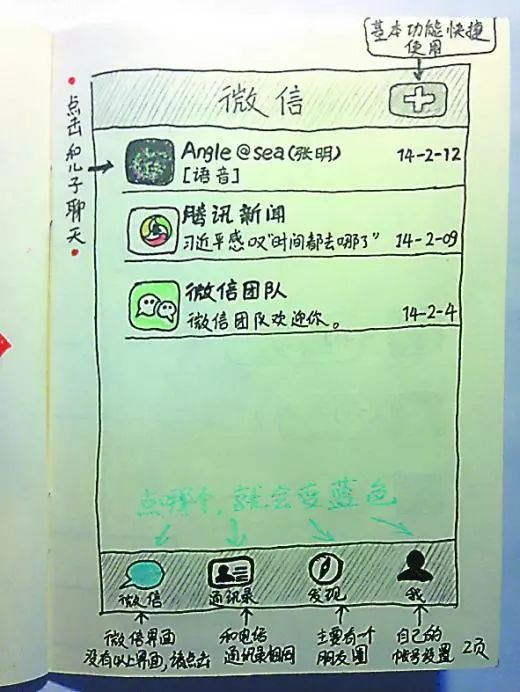 基本功能快捷
使用
微信
点击和儿子聊天
Angle@sea(张明)
14-2-12
[语音]
腾讯新闻
习近平感叹“时间都去哪了” 14-2-09
微信团队
微信团队欢迎你。
14-2-4
点哪个,就会变蓝色
微信 通讯录 发现 我
微信界面 和电话 主要有一个 自己的
没有以上界面,请点击 通讯录相同 朋友圈 帐号设置
2页